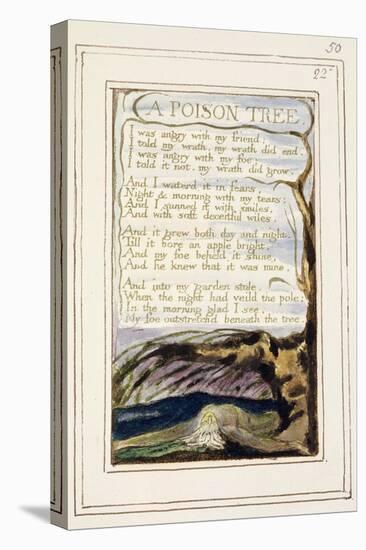 50
22
A POISON TREE.
I was angry with my friend;
I told my wrath, my wrath did end.
I was angry with my foe:
I told it not, my wrath did grow.
And I waterd it in fears,
Night & morning with my tears:
And I sunned it with smiles,
And with soft deceitful wiles.
And it grew both day and night,
Till it bore an apple bright.
And my foe beheld it shine,
And he knew that it was mine.
And into my garden stole.
When the night had veild the pole;
In the morning glad I see,
My foe outstretchd beneath the tree.